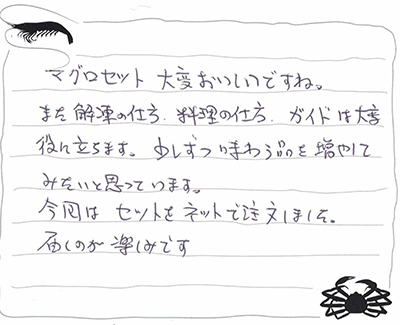 マグロセット 大変おいしいですね。
また解凍の仕方. 料理の仕方. ガイドは大変
役に立ちます。少しずつ味わう品を増やして
みたいと思っています。
今回は セットをネットで注文しました。
届くのが楽しみです